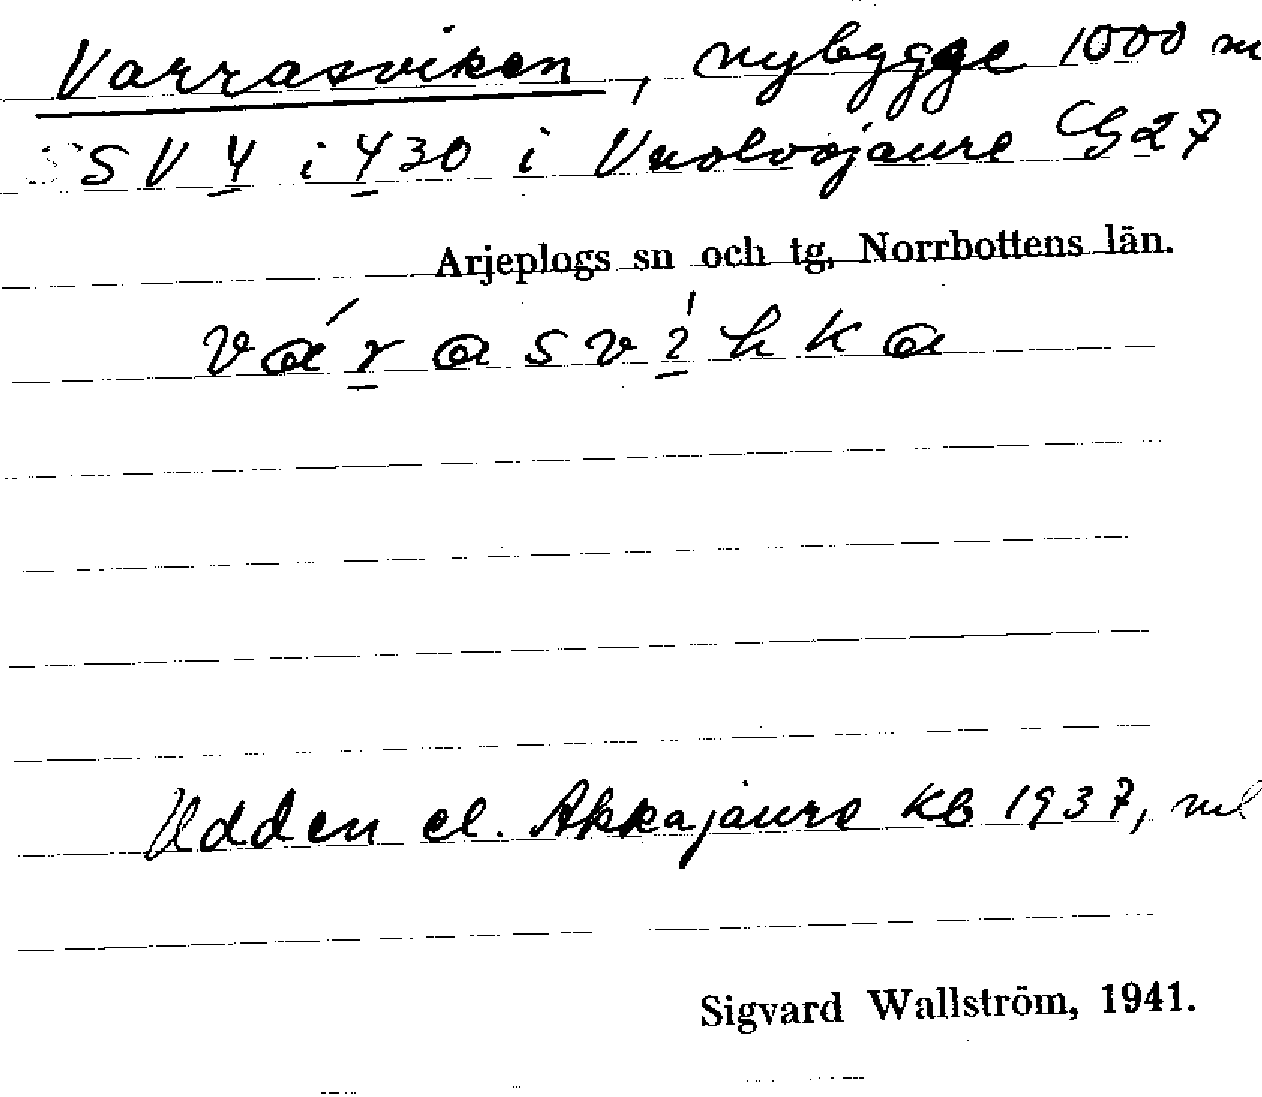 Varrasviken, nybygge 1000 m
SSV 4 i 430 i Vuolvojaure G 27
Arjeplogs sn och tg, Norrbottens län.
várasvíhka
Udden el. Akkajaure Kb 1937, ml
Sigvard Wallström, 1941.